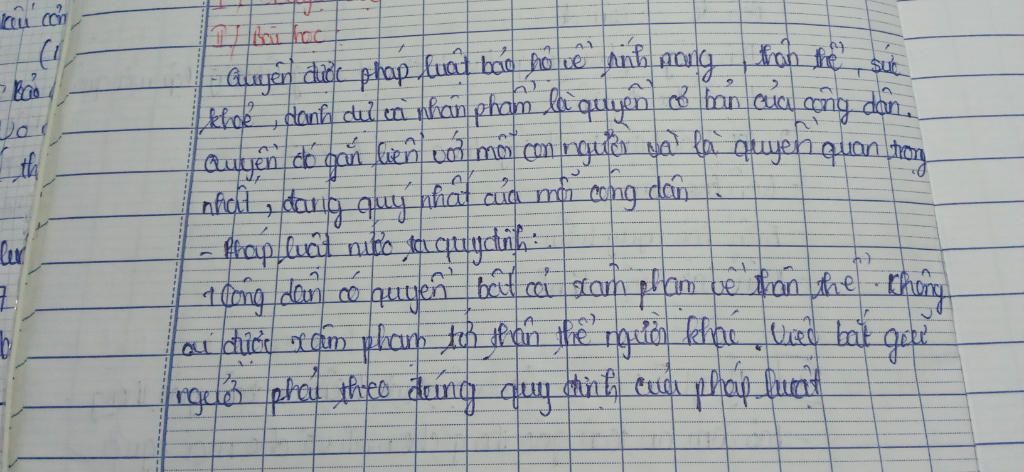 II/ Bài học
- Quyền được pháp luật bảo hộ về tính mạng, thân thể, sức
khoẻ, danh dự và nhân phẩm là quyền cơ bản của công dân.
Quyền đó gắn liền với mỗi con người và là quyền quan trọng
nhất, đáng quý nhất của mỗi công dân.
- Pháp luật nước ta quy định:
+ Công dân có quyền bất cả xâm phạm về thân thể. Không
ai được xâm phạm tới thân thể người khác. Việc bắt giữ
người phải theo đúng quy định của pháp luật